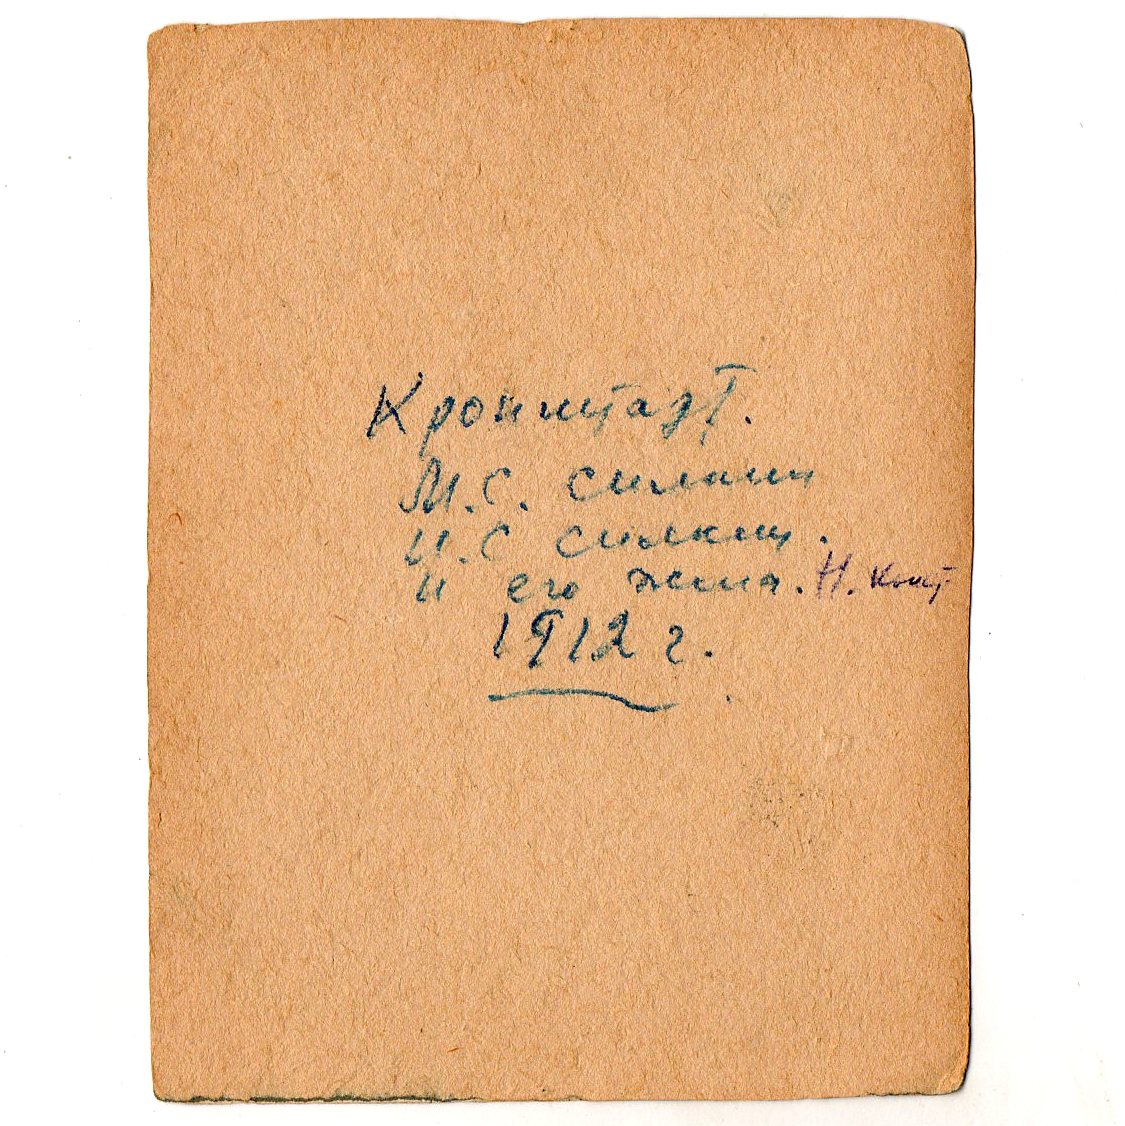 Кронштадт.
М.С. Силкин
И.С Силкин.
и его жена. Н.
1912 г.